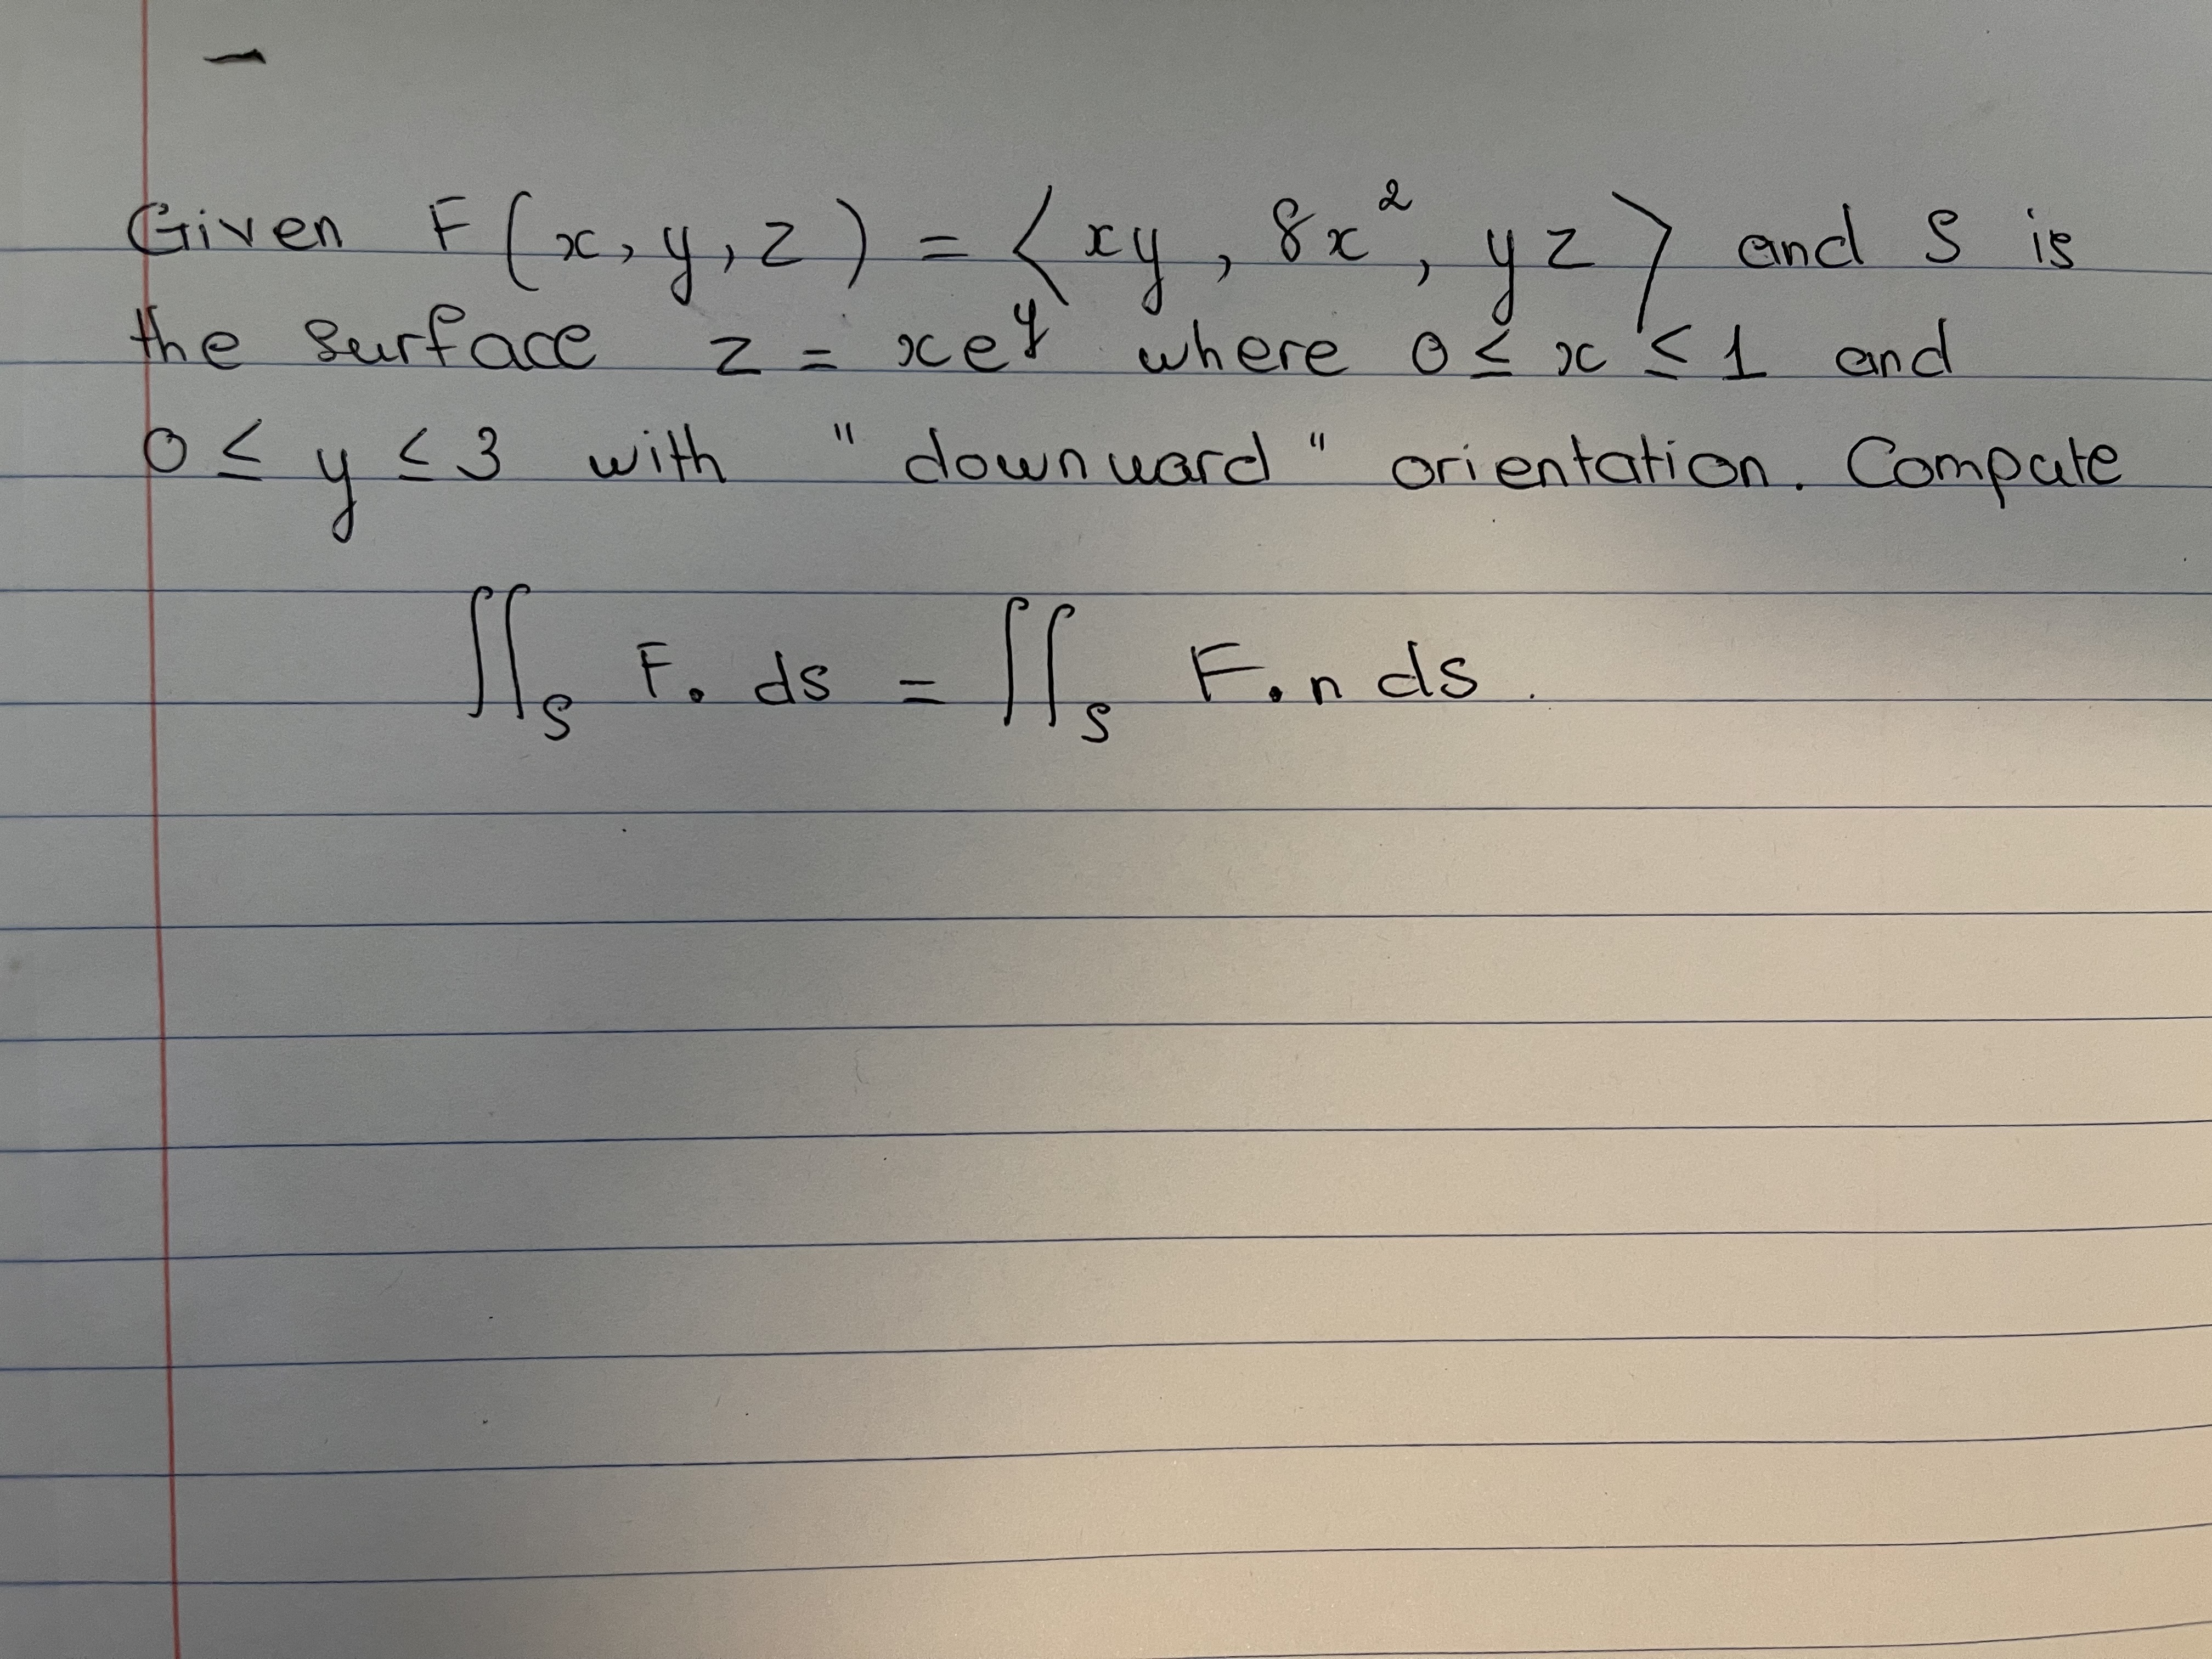 Given F(x, y, z) = ⟨xy, 8x², yz⟩ and S is
the surface z = xe^y where 0 ≤ x ≤ 1 and
0 ≤ y ≤ 3 with "downward" orientation. Compute
∬_S F. ds = ∬_S F.n ds.